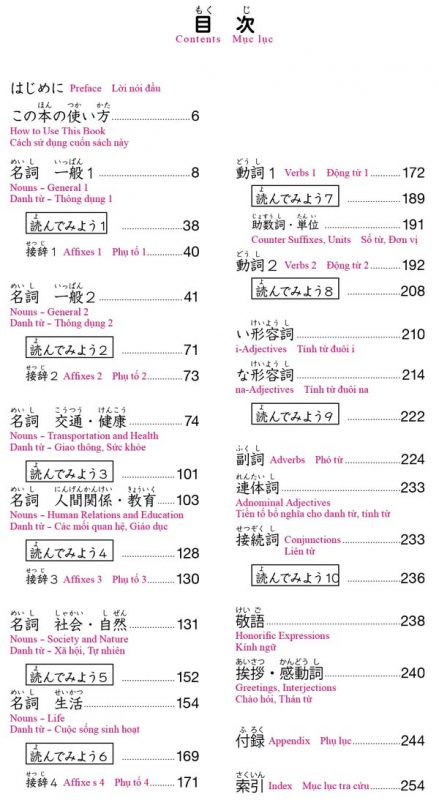 もく じ
目 次
Contents Mục lục
はじめに Preface Lời nói đầu
ほん つか かた
この本の使い方..............................6
How to Use This Book
Cách sử dụng cuốn sách này
めい し いっぱん
名詞 一般1..............................8
Nouns – General 1
Danh từ – Thông dụng 1
よ
読んでみよう1..............................38
せつ じ
接辞1 Affixes 1 Phụ tố 1..........40
めい し いっぱん
名詞 一般2..............................41
Nouns – General 2
Danh từ – Thông dụng 2
よ
読んでみよう2..............................71
せつ じ
接辞2 Affixes 2 Phụ tố 2..........73
めい し こうつう けんこう
名詞 交通・健康..............................74
Nouns – Transportation and Health
Danh từ – Giao thông, Sức khỏe
よ
読んでみよう3..............................101
めい し にんげんかんけい きょういく
名詞 人間関係・教育.....103
Nouns – Human Relations and Education
Danh từ – Các mối quan hệ, Giáo dục
よ
読んでみよう4..............................128
せつ じ
接辞3 Affixes 3 Phụ tố 3..........130
めい し しゃかい し ぜん
名詞 社会・自然..............................131
Nouns – Society and Nature
Danh từ – Xã hội, Tự nhiên
よ
読んでみよう5..............................152
めい し せいかつ
名詞 生活..............................154
Nouns – Life
Danh từ – Cuộc sống sinh hoạt
よ
読んでみよう6..............................169
せつ じ
接辞4 Affixe s 4 Phụ tố 4..........171
どう し
動詞1 Verbs 1 Động từ 1..........172
よ
読んでみよう7..............................189
じょすう し たん い
助数詞・単位..............................191
Counter Suffixes, Units Số từ, Đơn vị
どう し
動詞2 Verbs 2 Động từ 2..........192
よ
読んでみよう8..............................208
けいよう し
い形容詞..............................210
i-Adjectives Tính từ đuôi i
けいよう し
な形容詞..............................214
na-Adjectives Tính từ đuôi na
よ
読んでみよう9..............................222
ふく し
副詞 Adverbs Phó từ..........224
れんたい し
連体詞..............................233
Adnominal Adjectives
Tiền tố bổ nghĩa cho danh từ, tính từ
せつぞく し
接続詞 Conjunctions..........233
Liên từ
よ
読んでみよう10..............................236
けい ご
敬語..............................238
Honorific Expressions
Kính ngữ
あいさつ かんどう し
挨拶・感動詞..............................240
Greetings, Interjections
Chào hỏi, Thán từ
ふ ろく
付録 Appendix Phụ lục..........244
さくいん
索引 Index Mục lục tra cứu.....254